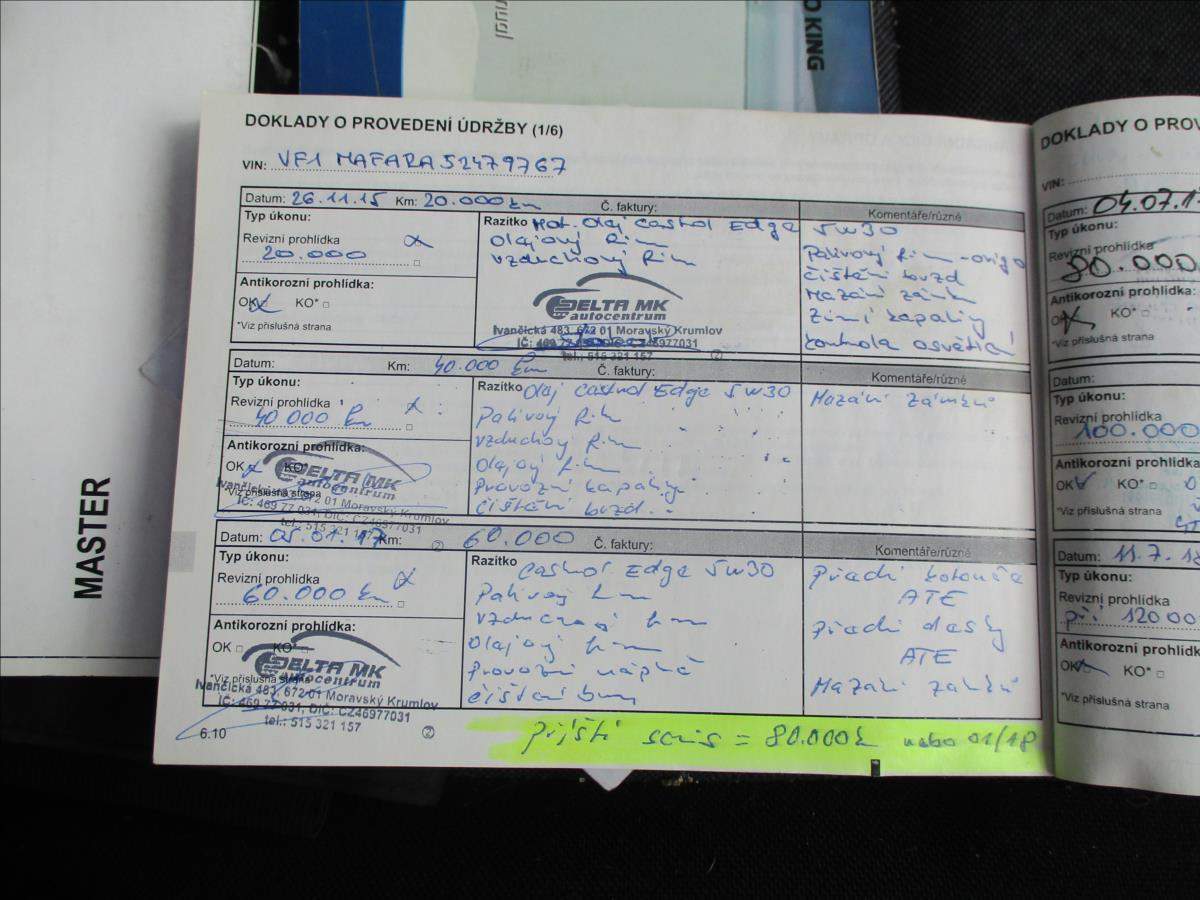 MASTER
O KING
DOKLADY O PROVEDENÍ ÚDRŽBY (1/6)
VIN: VF1 MAFARA52479767
Datum: 26.11.15 Km: 20.000 km Č. faktury:
Komentáře/různé
Typ úkonu:
Revizní prohlídka
20.000
Antikorozní prohlídka:
OK KO*
*Viz příslušná strana
Razítko Mot. Olej Castrol Edge 5W30
Olejový film
Vzduchový film
DELTA MK
autocentrum
Ivančická 483, 672 01 Moravský Krumlov
tel.: 515 321 157
Palivový film - orig
čištění brzd
Mazání zámk
Zimní kapaliny
kontrola osvětlení
Datum: Km: 40.000 km Č. faktury:
Komentáře/různé
Typ úkonu:
Revizní prohlídka
40 000 km
Antikorozní prohlídka:
OK KO*
*Viz příslušná strana
DELTA MK
autocentrum
Ivančická 483, 672 01 Moravský Krumlov
IČ: 469 77 031, DIČ: CZ46977031
tel.: 515 321 157
Razítko Olej Castrol Edge 5W30
Palivový film
vzduchový film
Olejový film
Provozní kapaliny
čištění brzd
Mazání zámků
Datum: 05.01.17 Km: 60.000 Č. faktury:
Komentáře/různé
Typ úkonu:
Revizní prohlídka
60.000 km
Antikorozní prohlídka:
OK KO*
*Viz příslušná strana
DELTA MK
autocentrum
Ivančická 483, 672 01 Moravský Krumlov
IČ: 469 77 031, DIČ: CZ46977031
tel.: 515 321 157
Razítko
Castrol Edge 5W30
Palivový
olejový
Provozní náplně
čištění
Přední kotouče
ATE
Přední desky
ATE
Mazání zámků
6.10
příští servis = 80.000k nebo 01/18
DOKLADY O PROV
VIN:
Datum: 04.07.1
Typ úkonu:
Revizní prohlídka
80.000
Antikorozní prohlídka:
OK KO*
*Viz příslušná strana
Datum:
Typ úkonu:
Revizní prohlídka
100.000
Antikorozní prohlídka
OK KO*
*Viz příslušná strana
Datum: 11.7.18
Typ úkonu:
Revizní prohlídka
při 12000
Antikorozní prohlídk
OK KO*
*Viz příslušná strana